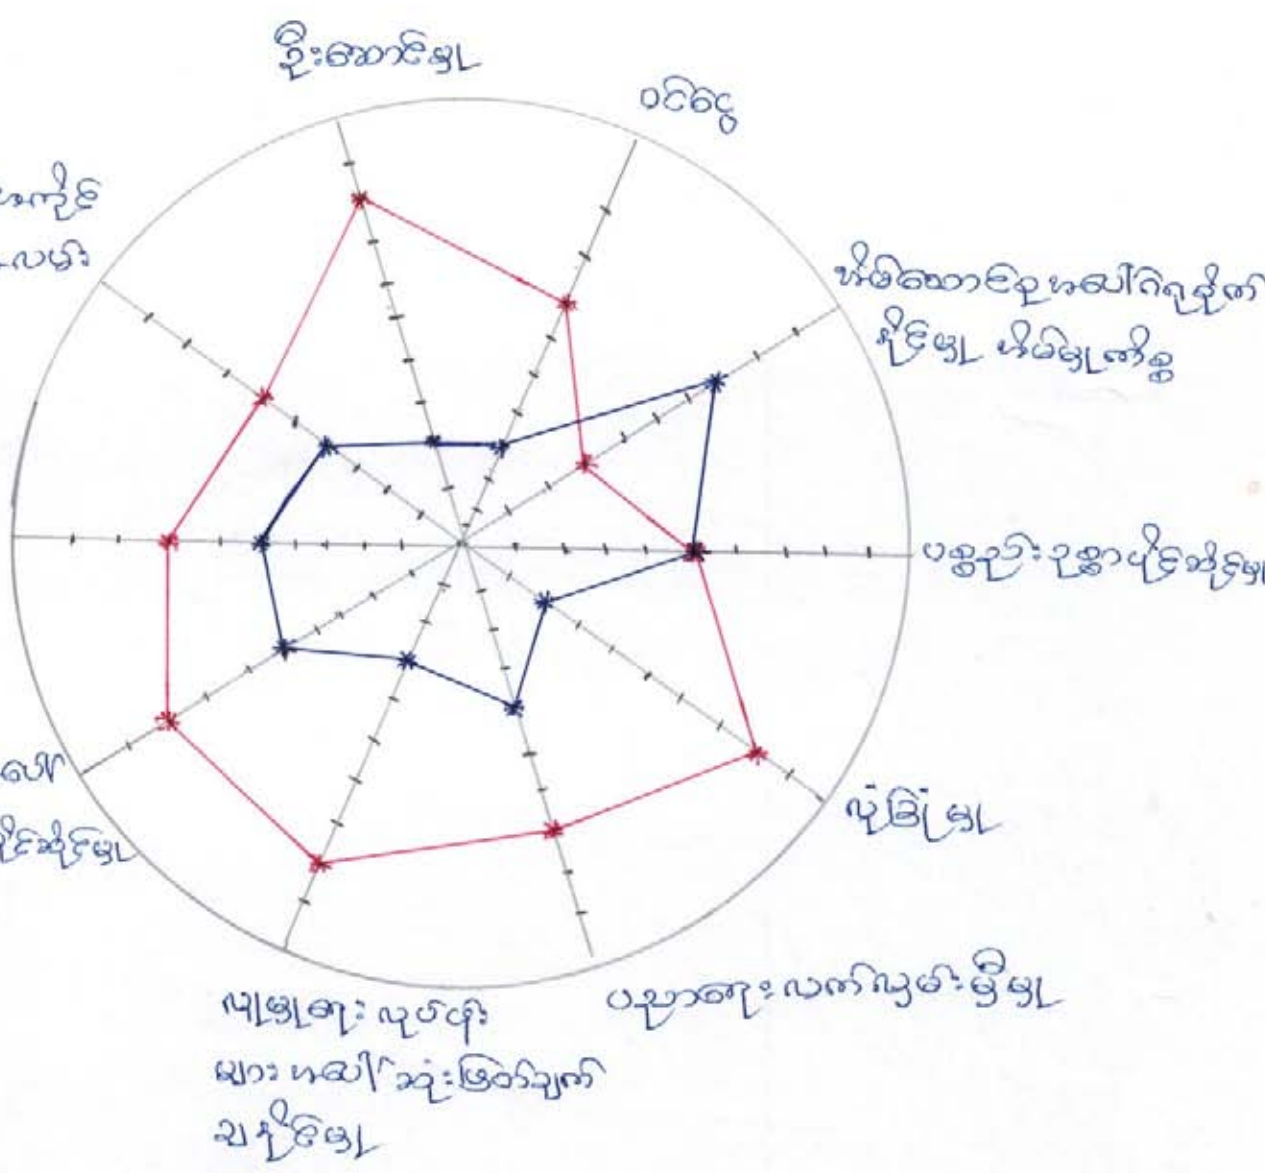 ဦးဆောင်မှု
ဝင်ငွေ
အိမ်ထောင်စုအပေါ်ဂရုစိုက်
နိုင်မှု အိမ်မှုကိစ္စ
ပစ္စည်းဥစ္စာပိုင်ဆိုင်မှု
လုံခြုံမှု
ပညာရေးလက်လှမ်းမှီမှု
လူမှုရေးလုပ်ငန်း
များအပေါ်ဆုံးဖြတ်ချက်
ချနိုင်မှု
ပေါ်
ပိုင်ဆိုင်မှု
လမ်း